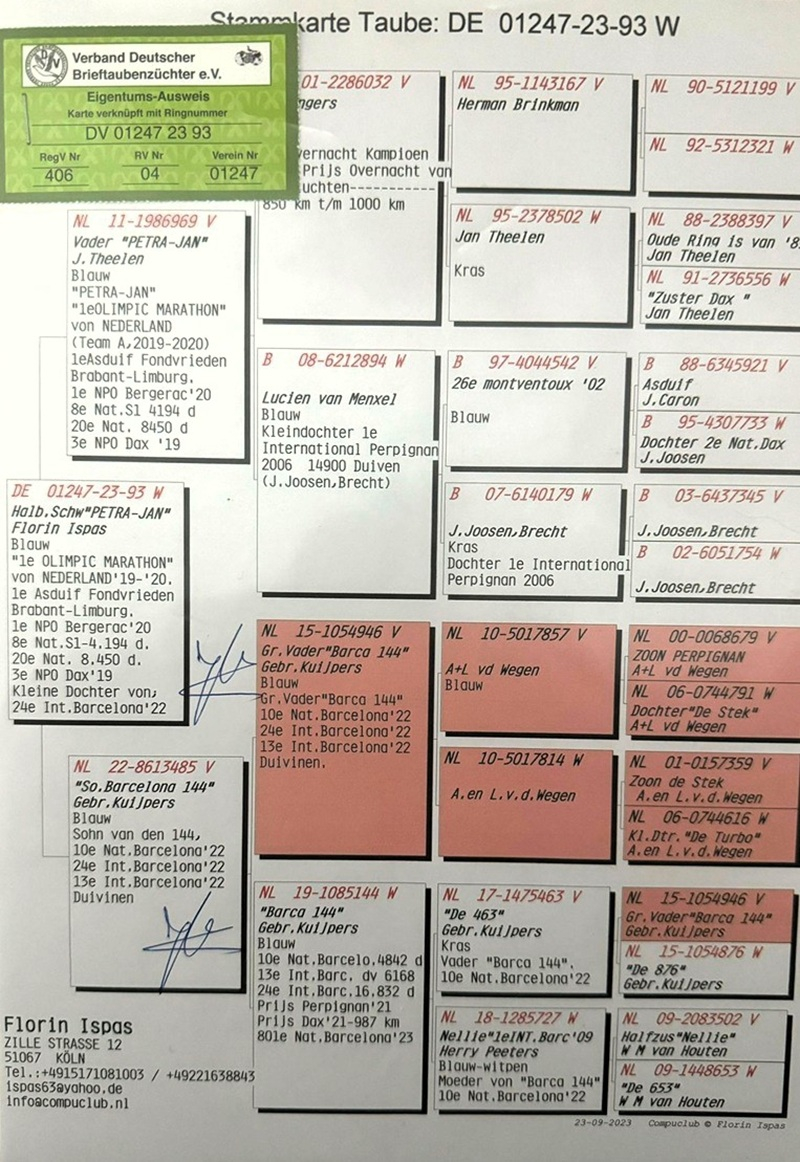 Stammkarte Taube: DE 01247-23-93 W
Verband Deutscher
Brieftaubenzüchter e.V.
Eigentums-Ausweis
Karte verknüpft mit Ringnummer
DV 01247 23 93
RegV Nr
RV Nr
Verein Nr
406
04
01247
01-2286032 V
vernacht Kampioen
Prijs Overnacht van
850 km t/m 1000 km
NL 95-1143167 V
Herman Brinkman
NL 90-5121199 V
NL 92-5312321 W
NL 95-2378502 W
Jan Theelen
Kras
NL 88-2388397 V
Oude Ring is van '8
Jan Theelen
NL 91-2736556 W
"Zuster Dax "
Jan Theelen
NL 11-1986969 V
Vader "PETRA-JAN"
J.Theelen
Blauw
"PETRA-JAN"
"1eOLIMPIC MARATHON"
von NEDERLAND
(Team A,2019-2020)
1eAsduif Fondvrieden
Brabant-Limburg.
1e NPO Bergerac'20
8e Nat.S1 4194 d
20e Nat. 8450 d
3e NPO Dax '19
B 08-6212894 W
Lucien van Menxel
Blauw
Kleindochter 1e
International Perpignan
2006 14900 Duiven
(J.Joosen,Brecht)
B 97-4044542 V
26e montventoux '02
Blauw
B 88-6345921 V
Asduif
J.Caron
B 95-4307733 W
Dochter 2e Nat.Dax
J.Joosen
B 07-6140179 W
J.Joosen,Brecht
Kras
Dochter 1e International
Perpignan 2006
B 03-6437345 V
J.Joosen,Brecht
B 02-6051754 W
J.Joosen,Brecht
DE 01247-23-93 W
Halb.Schw"PETRA-JAN"
Florin Ispas
Blauw
"1e OLIMPIC MARATHON"
von NEDERLAND'19-'20.
1e Asduif Fondvrieden
Brabant-Limburg.
1e NPO Bergerac'20
8e Nat.S1-4.194 d.
20e Nat. 8.450 d.
3e NPO Dax'19
Kleine Dochter von,
24e Int.Barcelona'22
NL 15-1054946 V
Gr.Vader"Barca 144"
Gebr.Kuijpers
Blauw
Gr.Vader"Barca 144"
10e Nat.Barcelona'22
24e Int.Barcelona'22
13e Int.Barcelona'22
Duivinen.
NL 10-5017857 V
A+L vd Wegen
Blauw
NL 00-0068679 V
ZOON PERPIGNAN
A+L vd Wegen
NL 06-0744791 W
Dochter"De Stek"
A+L vd Wegen
NL 10-5017814 W
A.en L.v.d.Wegen
NL 01-0157359 V
Zoon de Stek
A.en L.v.d.Wegen
NL 06-0744616 W
Kl.Dtr."De Turbo"
A.en L.v.d.Wegen
NL 22-8613485 V
"So.Barcelona 144"
Gebr.Kuijpers
Blauw
Sohn van den 144,
10e Nat.Barcelona'22
24e Int.Barcelona'22
13e Int.Barcelona'22
Duivinen
NL 19-1085144 W
"Barca 144"
Gebr.Kuijpers
Blauw
10e Nat.Barcelo.4842 d
13e Int.Barc. dv 6168
24e Int.Barc.16.832 d
Prijs Perpignan'21
Prijs Dax'21-987 km
801e Nat.Barcelona'23
NL 17-1475463 V
"De 463"
Gebr.Kuijpers
Kras
Vader "Barca 144".
10e Nat.Barcelona'22
NL 15-1054946 V
Gr.Vader"Barca 144"
Gebr.Kuijpers
NL 15-1054876 W
"De 876"
Gebr.Kuijpers
NL 18-1285727 W
Nellie"1eINT.Barc'09
Herry Peeters
Blauw-witpen
Moeder von "Barca 144"
10e Nat.Barcelona'22
NL 09-2083502 V
Halfzus"Nellie"
W M van Houten
NL 09-1448653 W
"De 653"
W M van Houten
Florin Ispas
ZILLE STRASSE 12
51067 KÖLN
Tel.:+4915171081003 / +49221638843
ispas63@yahoo.de
info@compuclub.nl
23-09-2023 Compuclub © Florin Ispas